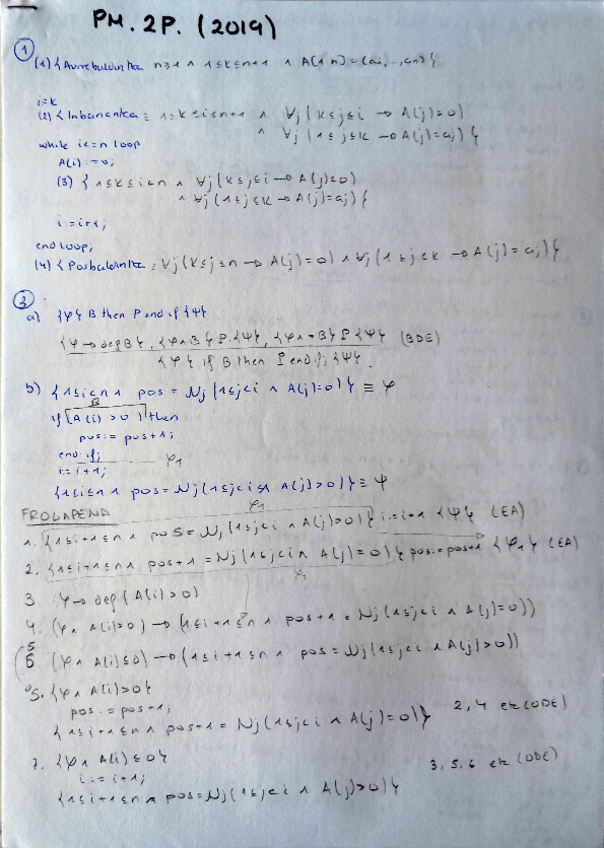 PM. 2P. (2019)
①
(1) { Aurrebaldintza n≥1 ∧ 1≤k≤n+1 ∧ A(1..n)=(a1,...,an) }
i=k
(2) { Inbariantea ≡ 1≤k≤i≤n+1 ∧ ∀j (k≤j≤i → A(j)=0)
∧ ∀j (1≤j≤k → A(j)=aj) }
while i<=n loop
A(i):=0;
(3) { 1≤k≤i≤n ∧ ∀j(k≤j≤i → A(j)=0)
∧ ∀j(1≤j≤k → A(j)=aj) }
i:=i+1;
end loop;
(4) { Postbaldintza ≡ ∀j(k≤j≤n → A(j)=0) ∧ ∀j(1≤j<k → A(j)=aj) }
②
a) {φ} B then P end if {Ψ}
{φ → deg B}, {φ ∧ B} P {Ψ}, {φ ∧ ¬B} P {Ψ} (BDE)
{φ} if B then P end if; {Ψ}.
b) {1≤i≤n ∧ pos = Nj (1≤j<i ∧ A(j)=0)} ≡ φ
B
if (A(i)>0) then
pos:= pos+1;
end if;
φ1
i:=i+1;
{1≤i≤n ∧ pos=Nj(1≤j<i ∧ A(j)>0)} ≡ Ψ
FROGAPENA
φ1
1. {1≤i+1≤n ∧ pos=Nj(1≤j<i ∧ A(j)>0)} i:=i+1 {Ψ} (EA)
2. {1≤i+1≤n ∧ pos+1=Nj(1≤j<i ∧ A(j)=0)} pos:=pos+1 {φ1} (EA)
3. φ → deg (A(i)>0)
4. (φ ∧ A(i)>0) → (1≤i+1≤n ∧ pos+1=Nj(1≤j<i ∧ A(j)=0))
5
6 (φ ∧ A(i)≤0) → (1≤i+1≤n ∧ pos=Nj(1≤j<i ∧ A(j)>0))
5. {φ ∧ A(i)>0}
pos:=pos+1;
{1≤i+1≤n ∧ pos+1=Nj(1≤j<i ∧ A(j)=0)} 2,4 eta (ODE)
7. {φ ∧ A(i)≤0}
i:=i+1;
{1≤i+1≤n ∧ pos=Nj(1≤j<i ∧ A(j)>0)} 3,5,6 eta (ODE)